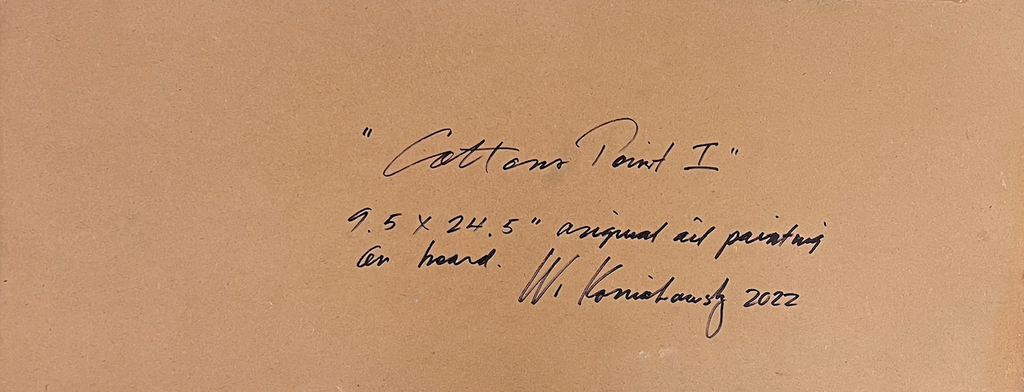 "Cottons Point I"
9.5 X 24.5" original oil painting
on board.
W. 2022